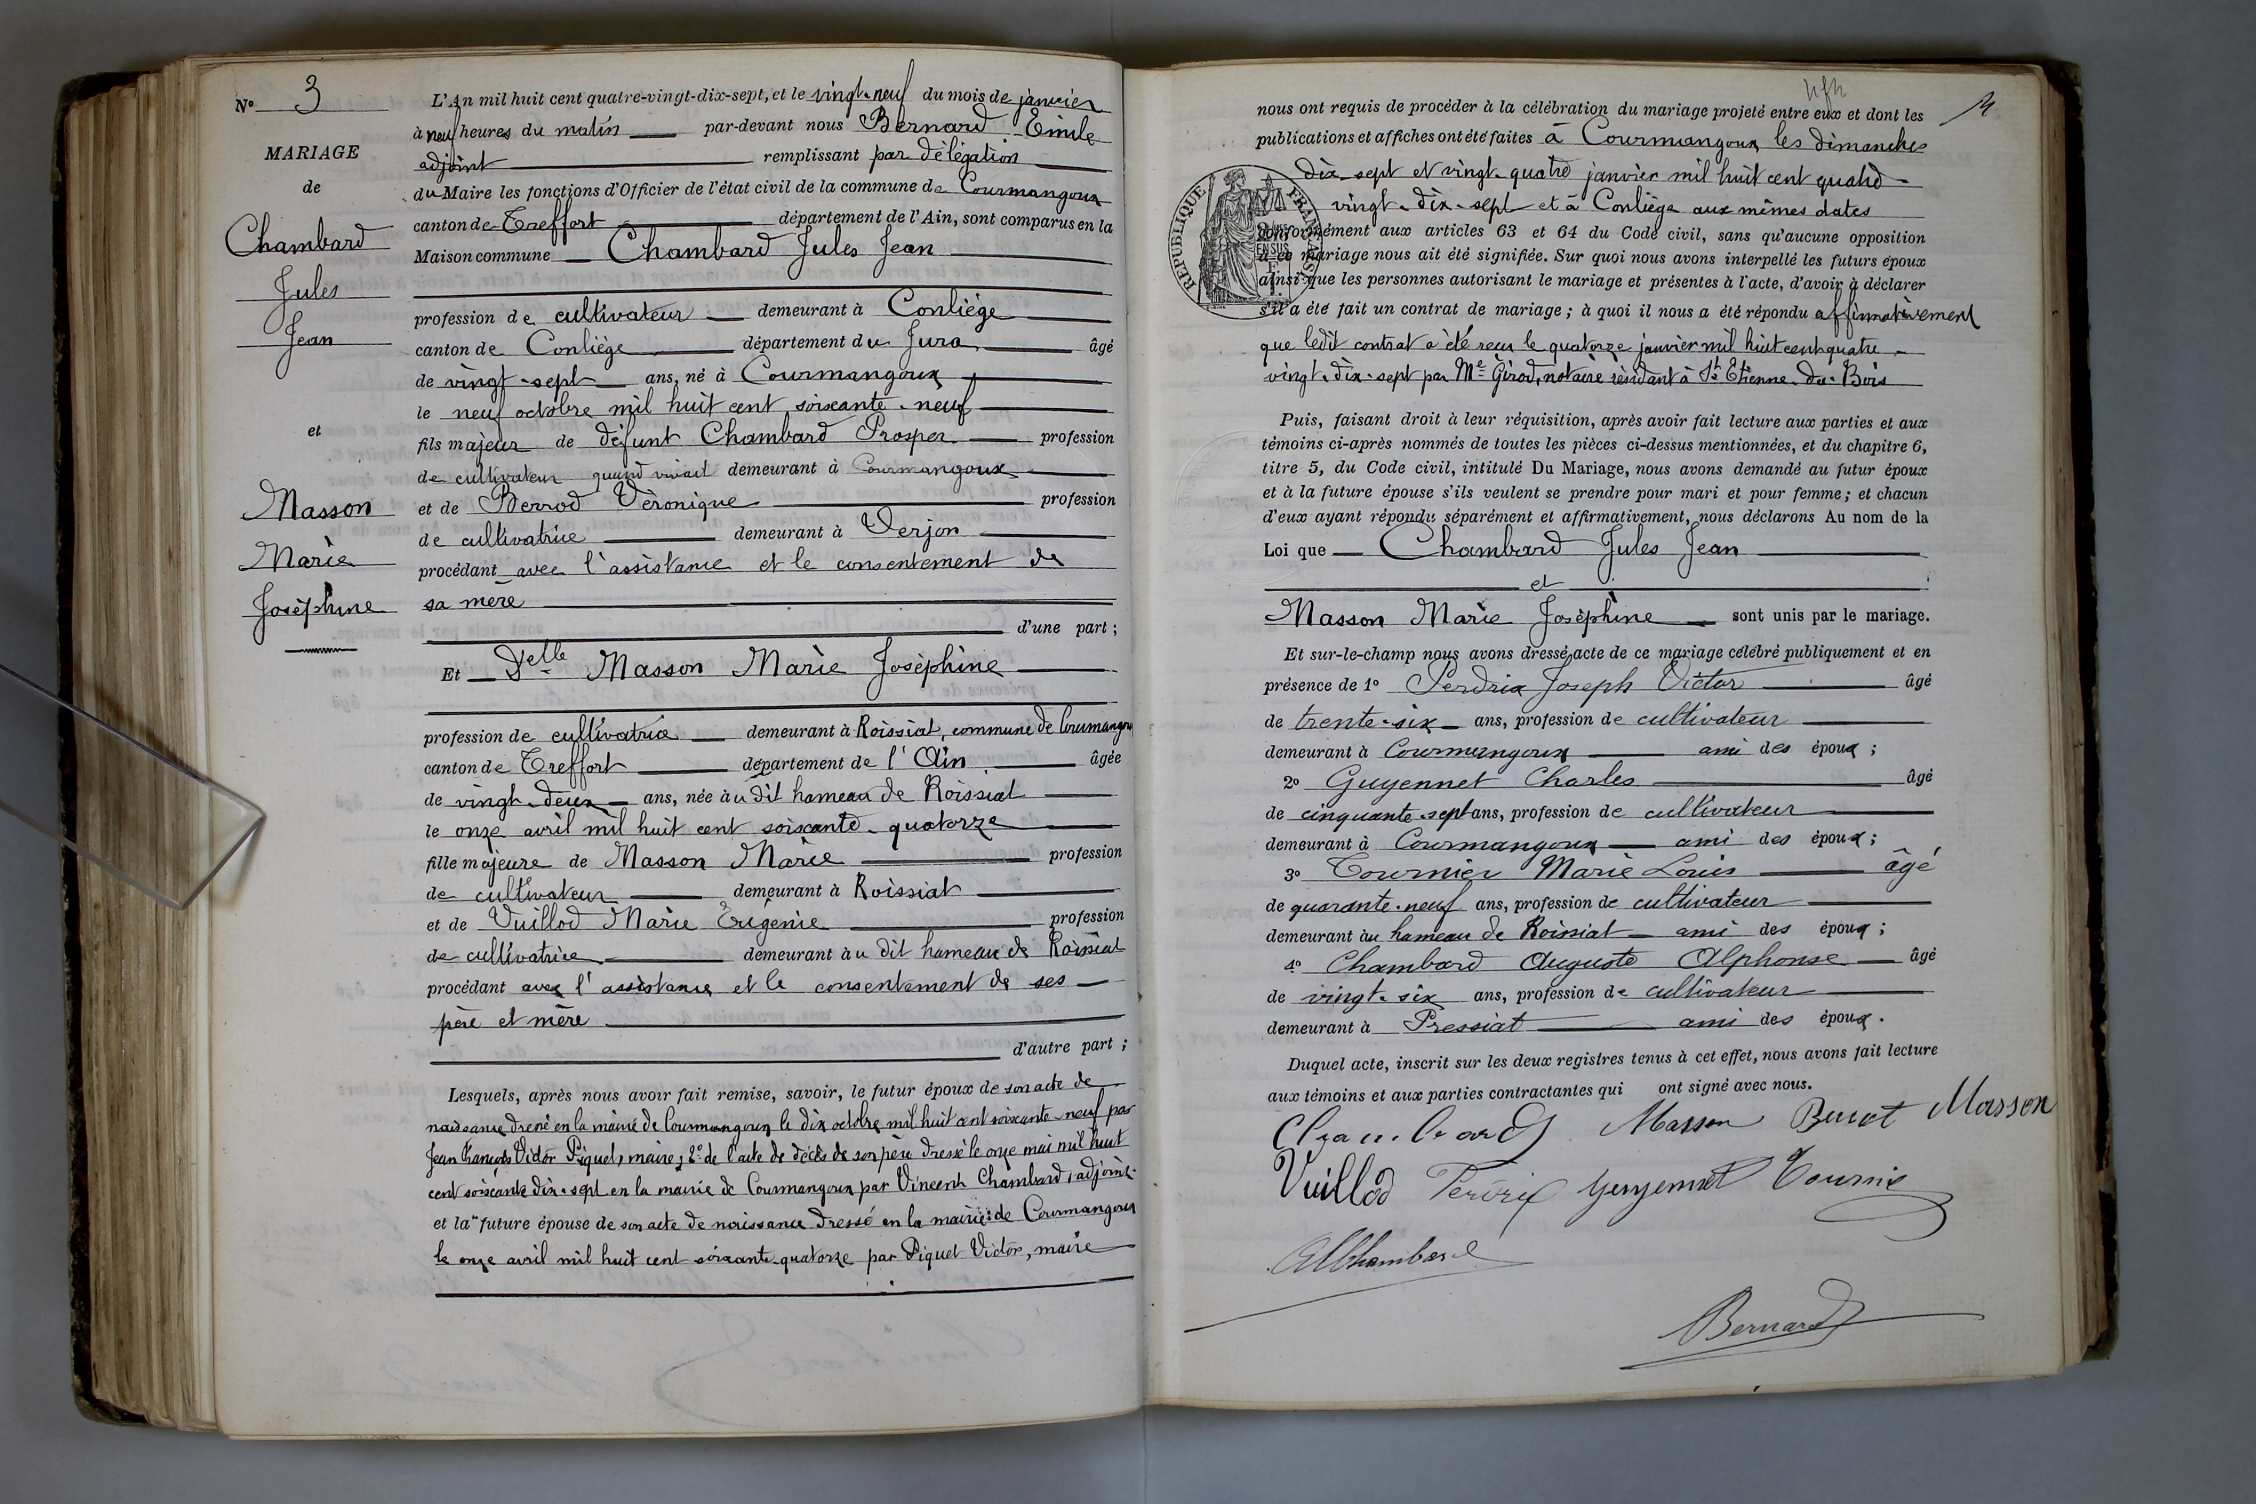 Nº 3
MARIAGE
de
Chambard
Jules
Jean
et
Masson
Marie
Joséphine
L'An mil huit cent quatre-vingt-dix-sept, et le vingt-neuf du mois de janvier
à neuf heures du matin par-devant nous Bernard Emile
adjoint remplissant par délégation
du Maire les fonctions d'Officier de l'état civil de la commune de Courmangoux
canton de Treffort département de l'Ain, sont comparus en la
Maison commune Chambard Jules Jean
profession de cultivateur demeurant à Conliège
canton de Conliège département du Jura âgé
de vingt-sept ans, né à Courmangoux
le neuf octobre mil huit cent soixante-neuf
fils majeur de défunt Chambard Prosper profession
de cultivateur quand vivait demeurant à Courmangoux
et de Berrod Véronique profession
de cultivatrice demeurant à Verjon
procédant avec l'assistance et le consentement de
sa mère
d'une part ;
Et Delle Masson Marie Joséphine
profession de cultivatrice demeurant à Roissiat, commune de Courmangoux
canton de Treffort département de l'Ain âgée
de vingt-deux ans, née à u dit hameau de Roissiat
le onze avril mil huit cent soixante-quatorze
fille majeure de Masson Marie profession
de cultivateur demeurant à Roissiat
et de Vuillod Marie Eugénie profession
de cultivatrice demeurant à u dit hameau de Roissiat
procédant avec l'assistance et le consentement de ses
père et mère
d'autre part ;
Lesquels, après nous avoir fait remise, savoir, le futur époux de son acte de
naissance dressé en la mairie de Courmangoux le dix octobre mil huit cent soixante-neuf par
Jean François Victor Piquet, maire ; 2º de l'acte de décès de son père dressé le onze mai mil huit
cent soixante dix-sept en la mairie de Courmangoux par Vincent Chambard, adjoint
et la future épouse de son acte de naissance dressé en la mairie de Courmangoux
le onze avril mil huit cent soixante-quatorze par Piquet Victor, maire
nous ont requis de procéder à la célébration du mariage projeté entre eux et dont les
publications et affiches ont été faites à Courmangoux les dimanches
dix-sept et vingt-quatre janvier mil huit cent quatre-
vingt-dix-sept et à Conliège aux mêmes dates
RÉPUBLIQUE FRANÇAISE
conformément aux articles 63 et 64 du Code civil, sans qu'aucune opposition
à ce mariage nous ait été signifiée. Sur quoi nous avons interpellé les futurs époux
ainsi que les personnes autorisant le mariage et présentes à l'acte, d'avoir à déclarer
s'il a été fait un contrat de mariage ; à quoi il nous a été répondu affirmativement
que ledit contrat a été reçu le quatorze janvier mil huit cent quatre-
vingt-dix-sept par Me Girod, notaire résidant à St Etienne-du-Bois
Puis, faisant droit à leur réquisition, après avoir fait lecture aux parties et aux
témoins ci-après nommés de toutes les pièces ci-dessus mentionnées, et du chapitre 6,
titre 5, du Code civil, intitulé Du Mariage, nous avons demandé au futur époux
et à la future épouse s'ils veulent se prendre pour mari et pour femme ; et chacun
d'eux ayant répondu séparément et affirmativement, nous déclarons Au nom de la
Loi que Chambard Jules Jean
et
Masson Marie Joséphine sont unis par le mariage.
Et sur-le-champ nous avons dressé acte de ce mariage célébré publiquement et en
présence de 1º Perdrix Joseph Victor âgé
de trente-six ans, profession de cultivateur
demeurant à Courmangoux ami des époux ;
2º Guyennet Charles âgé
de cinquante-sept ans, profession de cultivateur
demeurant à Courmangoux ami des époux ;
3º Tournier Marie Louis âgé
de quarante-neuf ans, profession de cultivateur
demeurant au hameau de Roissiat ami des époux ;
4º Chambard Auguste Alphonse âgé
de vingt-six ans, profession de cultivateur
demeurant à Pressiat ami des époux.
Duquel acte, inscrit sur les deux registres tenus à cet effet, nous avons fait lecture
aux témoins et aux parties contractantes qui ont signé avec nous.
Chambard Masson Masson
Vuillod Perdrix Guyennet Tournier
Chambard
Bernard